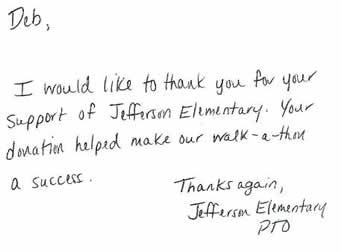 Deb,
I would like to thank you for your
support of Jefferson Elementary. Your
donation helped make our walk-a-thon
a success.
Thanks again,
Jefferson Elementary
PTO